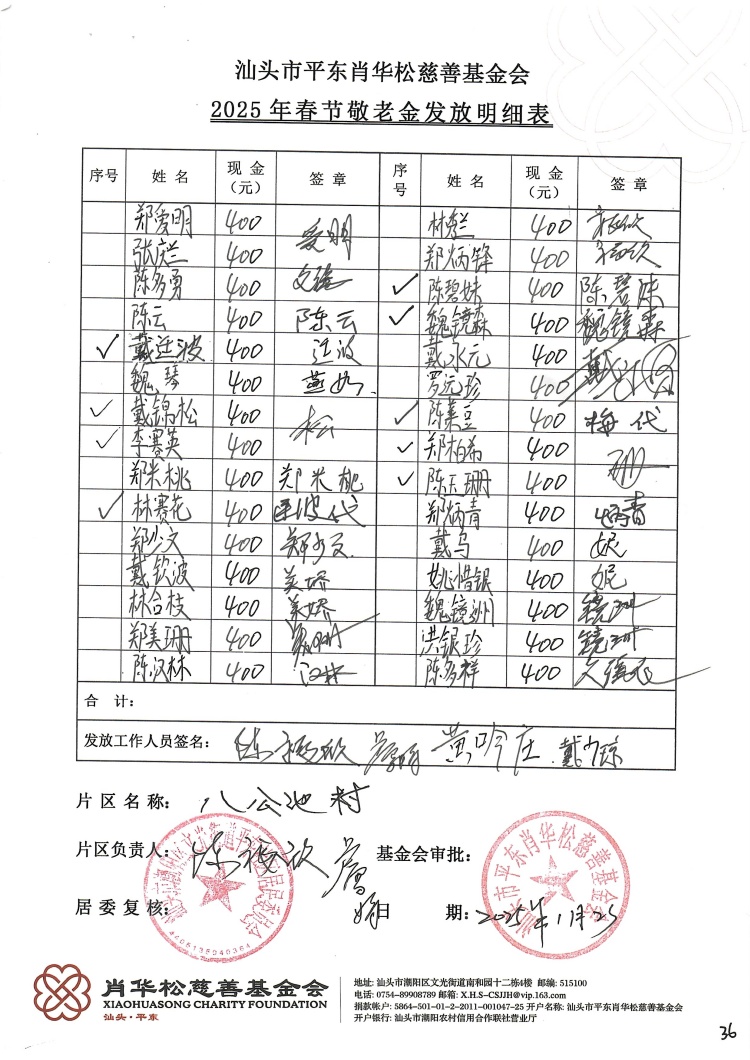 汕头市平东肖华松慈善基金会
2025年春节敬老金发放明细表
序号 姓名 现金（元） 签章 序号 姓名 现金（元） 签章
郑爱明 400 爱明 林 400
张庆兰 400 郑炳锋 400
陈多勇 400 ✓ 陈碧妹 400 陈碧妹
陈云 400 陈云 ✓ 魏镜森 400 魏镜森
✓ 戴廷波 400 廷波 戴永元 400
魏琴 400 罗元珍 400
✓ 戴锦松 400 松 ✓ 陈美豆 400 梅代
✓ 李赛英 400 ✓ 郑柏希 400
郑米桃 400 郑米桃 ✓ 陈玉珊 400 珊
✓ 林赛花 400 波代 郑炳青 400 炳青
郑少文 400 郑少文 戴乌 400 妮
戴钦波 400 美娇 姚惜银 400 妮
林合枝 400 美娇 魏镜洲 400 镜洲
郑美珊 400 洪银珍 400 镜洲
陈汉林 400 汉林 陈多祥 400
合 计：
发放工作人员签名： 黄吟庄
片区名称： 八公池村
片区负责人：
基金会审批：
居委复核：
日 期： 2025年1月25
汕头市平东肖华松慈善基金会
肖华松慈善基金会
XIAOHUASONG CHARITY FOUNDATION
汕头·平东
地址: 汕头市潮阳区文光街道南和园十二栋4楼 邮编: 515100
电话: 0754-89908789 邮箱: X.H.S-CSJJH@vip.163.com
捐款帐户: 5864-501-01-2-2011-001047-25 开户名称: 汕头市平东肖华松慈善基金会
开户银行: 汕头市潮阳农村信用合作联社营业厅
36